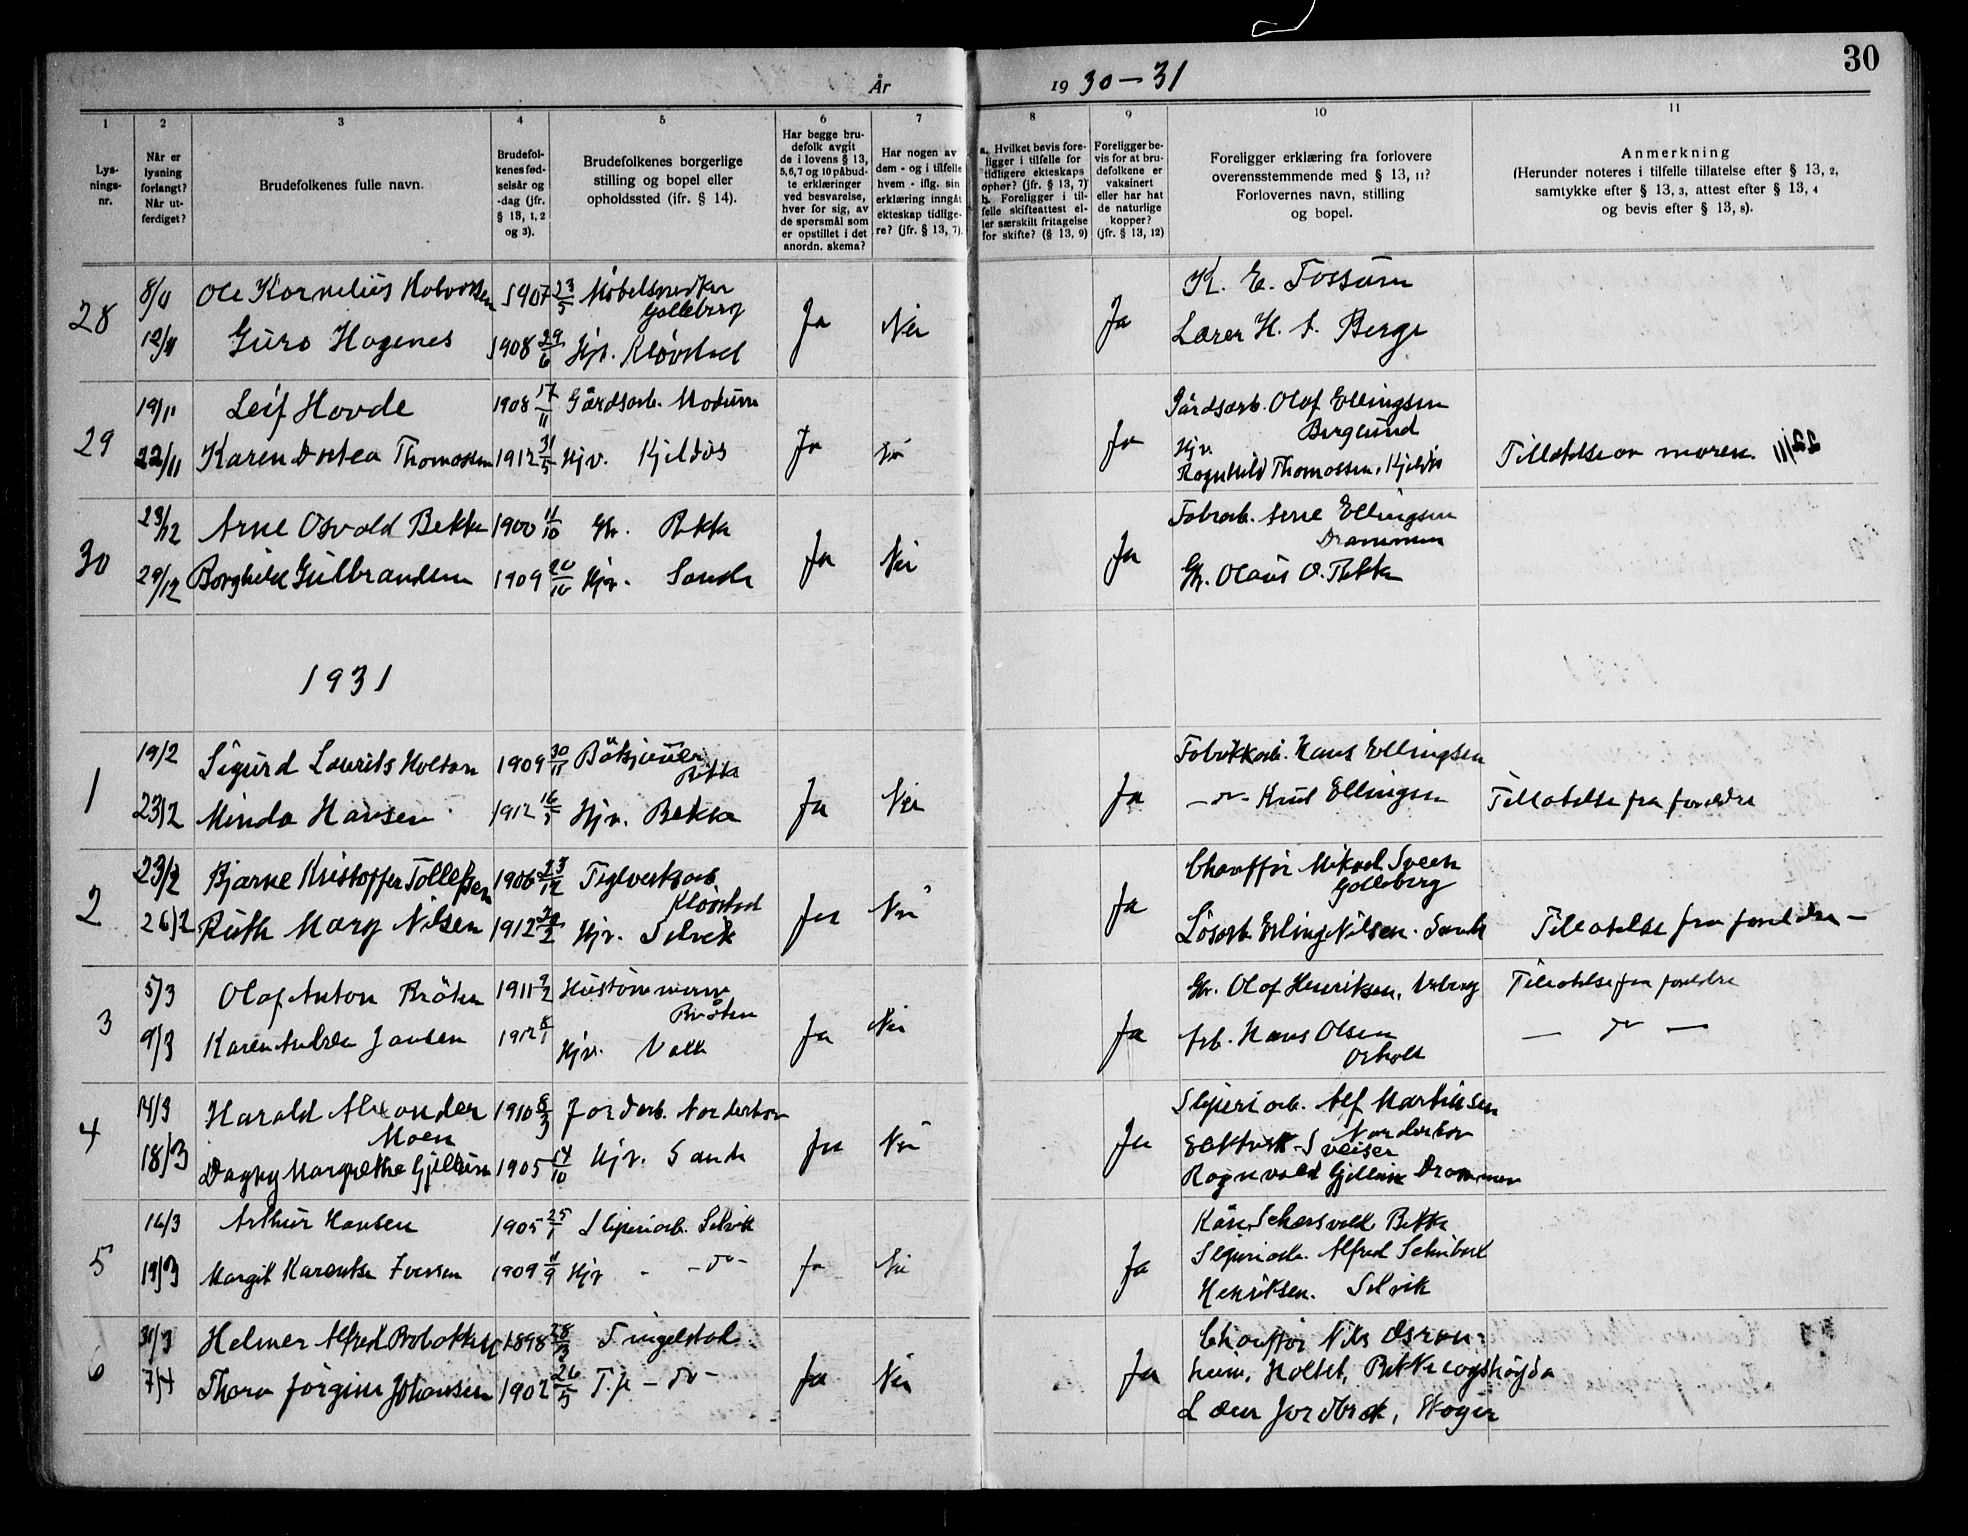 30
År 1930–31
1 2 3 4 5 6 7 8 9 10 11
Lys-
nings-
nr.
Når er
lysning
forlangt?
Når ut-
ferdiget?
Brudefolkenes fulle navn.
Brudefol-
kenes fød-
selsår og
-dag (jfr.
§ 13, 1, 2
og 3).
Brudefolkenes borgerlige
stilling og bopel eller
opholdssted (ifr. § 14).
Har begge bru-
defolk avgit
de i lovens § 13,
5,6,7 og 10 påbud-
te erklæringer
ved besvarelse,
hver for sig, av
de spørsmål som
er opstillet i det
anordn. skema?
Har nogen av
dem - og i tilfelle
hvem - iflg. sin
erklæring inngåt
ekteskap tidlige-
re? (jfr. § 13, 7).
a. Hvilket bevis fore-
ligger i tilfelle for
tidligere ekteskaps
ophør? (jfr. § 13, 7)
b. Foreligger i til-
felle skifteattest el-
ler særskilt fritagelse
for skifte? (§ 13, 9)
Foreligger be-
vis for at bru-
defolkene er
vaksinert
eller har hat
de naturlige
kopper?
(jfr. § 13, 12)
Foreligger erklæring fra forlovere
overensstemmende med § 13, 11?
Forlovernes navn, stilling
og bopel.
Anmerkning
(Herunder noteres i tilfelle tillatelse efter § 13, 2,
samtykke efter § 13, 3, attest efter § 13, 4
og bevis efter § 13, 8).
28 Ole Kornelius Halvorsen 1907 23/5 Møbelsnedker Ja Nei Ja K. E. Fossum
Golleberg
12/11 Guro Hagenes 1908 29/6 Hjv. Kløvstad Lærer H. S. Berge
29 19/11 Leif Hovde 1908 17/11 Gårdsarb. Modum Ja Nei Ja Gårdsarb. Olaf Ellingsen
Berglund
22/11 Karen Dortea Thomassen 1912 31/5 Hjv. Kjeldås Hjv.
Ragnhild Thomassen, Kjeldås Tillatelse av moren 22/11
30 23/12 Arne Osvald Bekka 1900 11/10 Gbr. Bekka Ja Nei Ja Fabrarb. Arne Ellingsen
Drammen
29/12 Borghild Gulbrandsen 1909 20/10 Hjv. Sande Gbr. Olaus O. Bekka
1931
1 19/2 Sigurd Laurits Holtan 1909 30/11 Båtsjauer Ja Nei Ja Fabrikkarb. Hans Ellingsen
Bekka
23/2 Minda Hansen 1912 16/5 Hjv. Bekka – do – Knut Ellingsen Tillatelse fra foreldre
2 23/2 Bjarne Kristoffer Tollefsen 1906 23/12 Teglverksarb. Ja Nei Ja Chauffør Mikael Sveen
Kløvstad Golleberg
26/2 Ruth Mary Nilsen 1912 Hjv. Selvik Løsarb. Erling Nilsen. Sande Tillatelse fra foreldre –
3 5/3 Olaf Anton Bråten 1911 9/2 Hustømmerm Ja Nei Ja Gbr. Olaf Henriksen, Tillatelse fra foreldre
Bråten
9/3 Karen Andrea Jansen 1912 8/1 Hjv. Arb. Hans Olsen – do –
4 14/3 Harald Alexander 1910 8/3 Jordarb. Norderhov Ja Nei Ja Sliperiarb. Alf Martinsen
Moen Norderhov
18/3 Dagny Margrethe Gjellum 1905 14/10 Hjv. Sande Elektrisk-Sveiser
Ragnvald Drammen
5 16/3 Arthur Hansen 1905 25/1 Sliperiarb. Selvik Ja Nei Ja Bekka
19/3 Margit Karentse Iversen 1909 11/9 Hjv – do – Sliperiarb. Alfred
Henriksen. Selvik
6 31/3 Helmer Alfred 1898 28/3 Singelstad Ja Nei Ja Chauffør Nils
heim, Holtet, Bekkelagshøgda
7/4 Thora Jørgine Johansen 1902 26/5 T.p – do – Jordbræk, Skoger